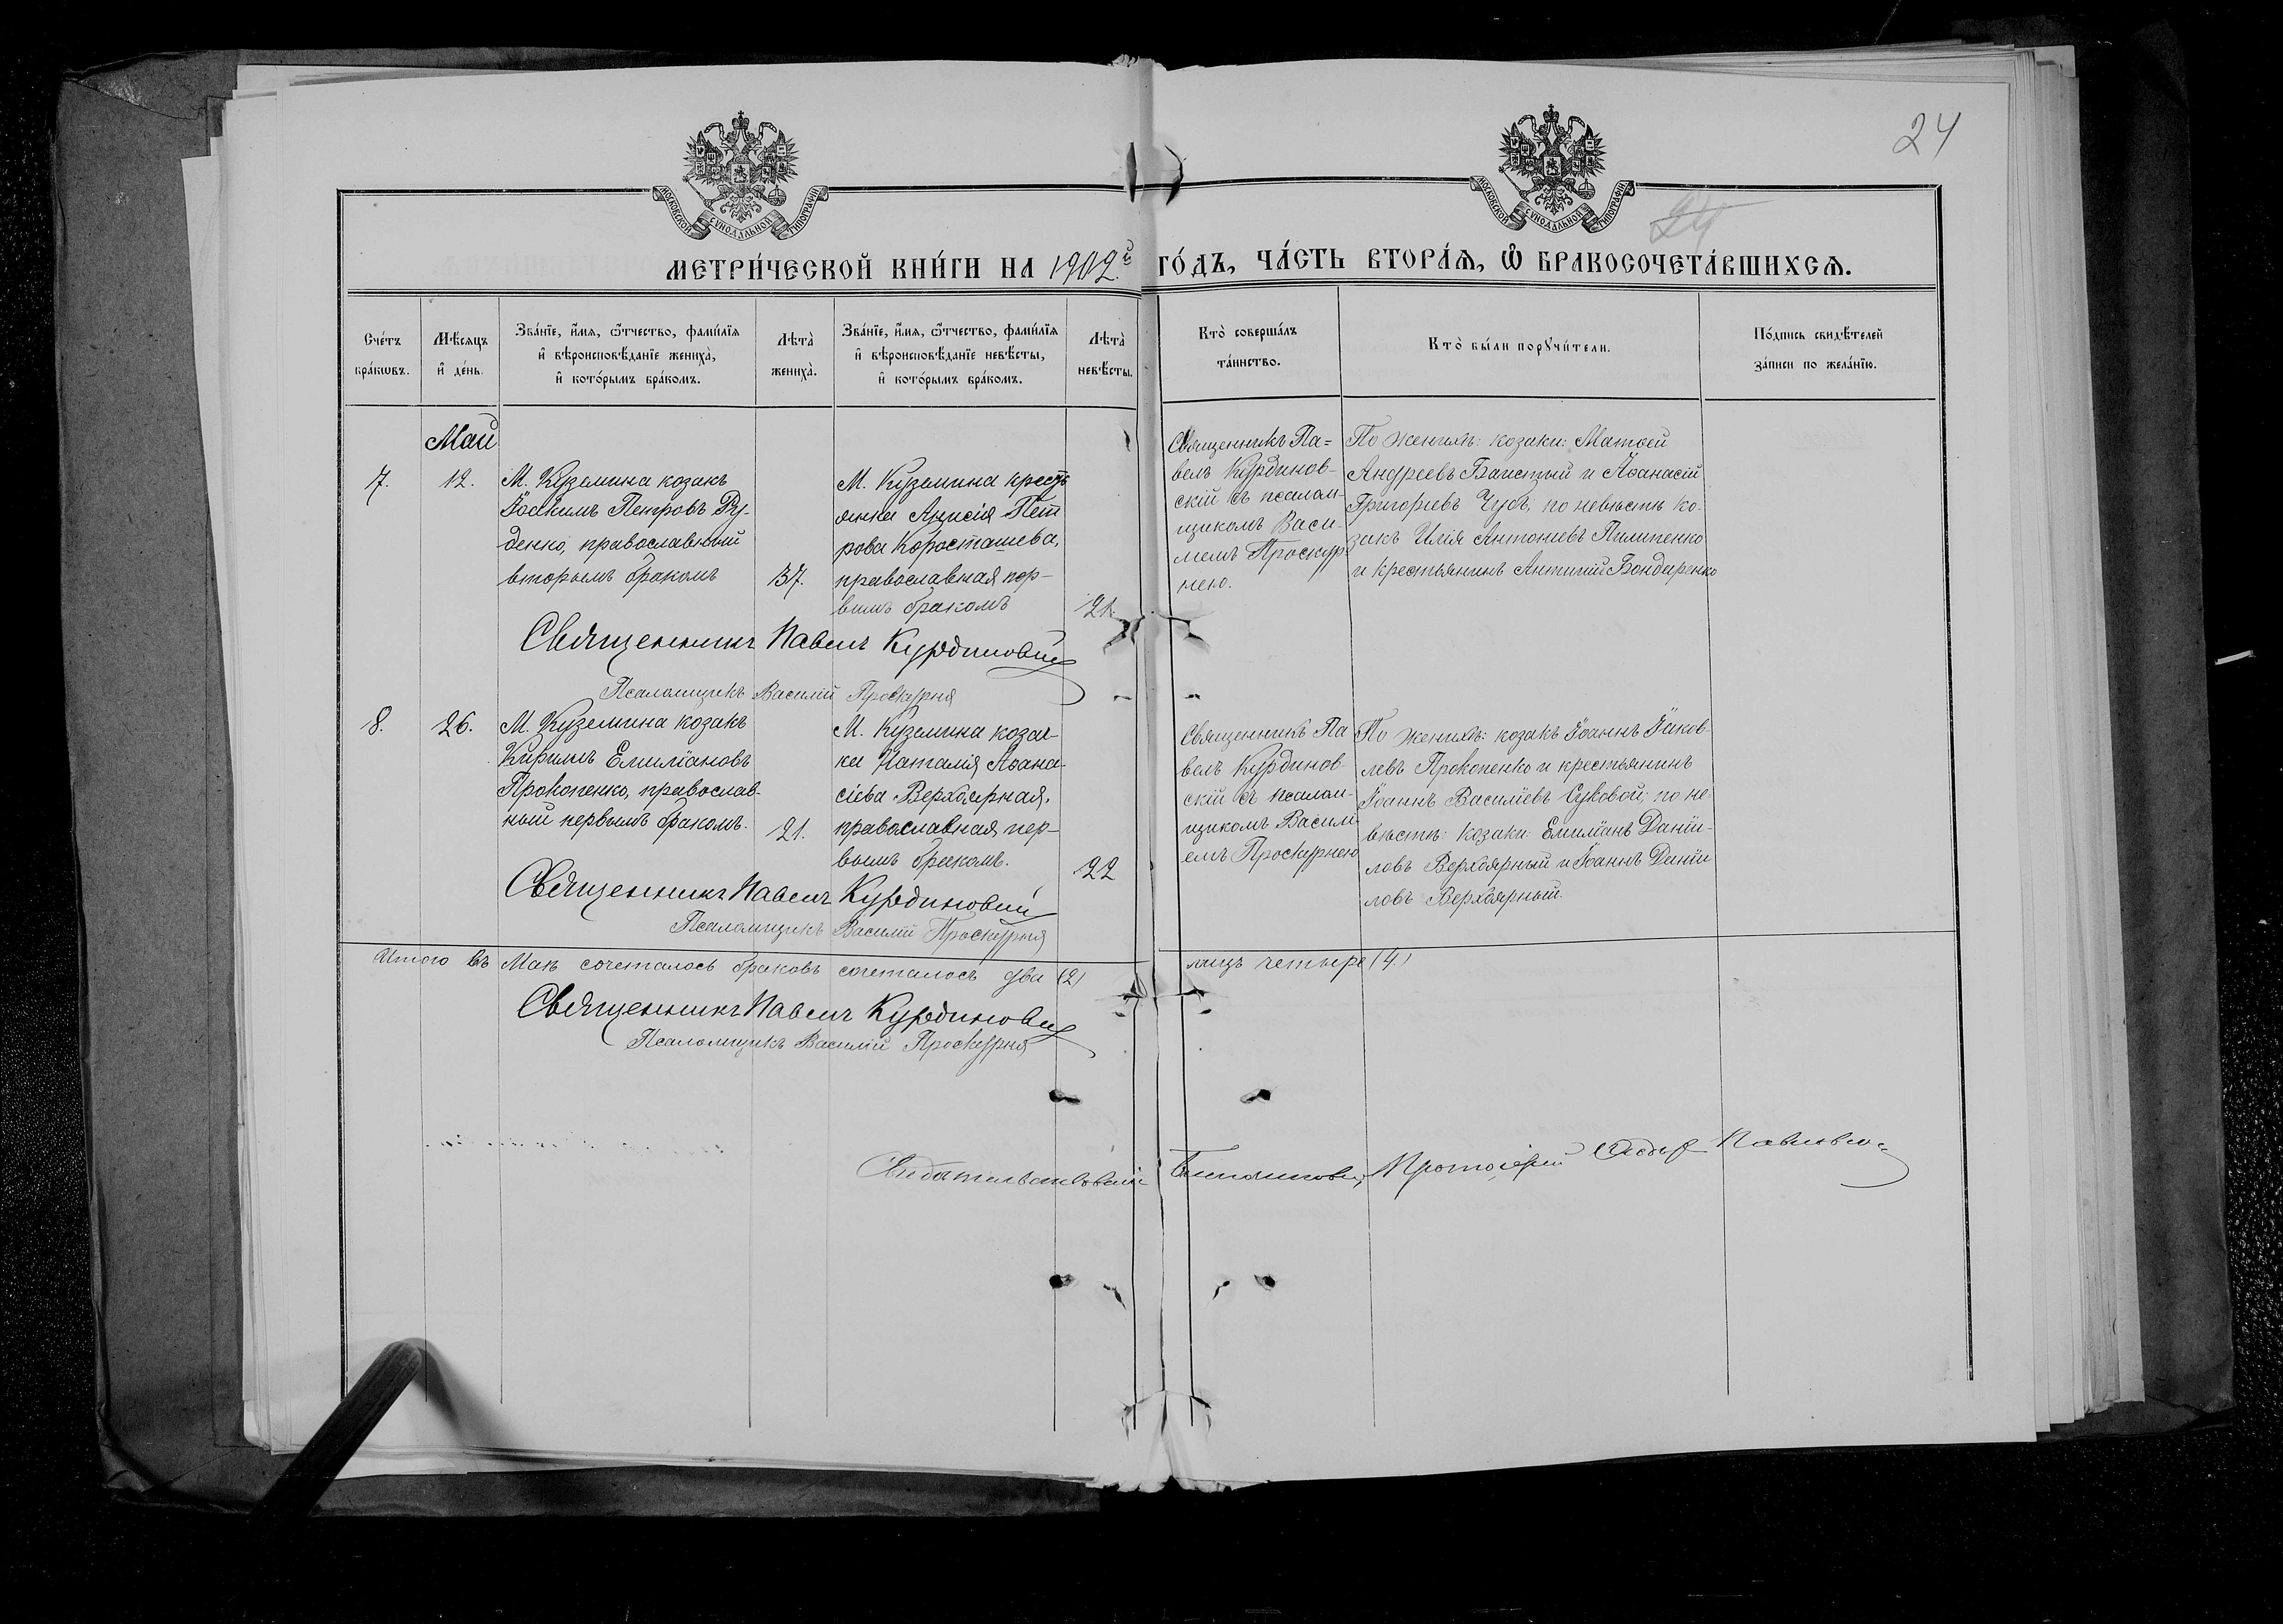 24
МОСКОВСКОЙ СѴНОДАЛЬНОЙ ТИПОГРАФІИ
МОСКОВСКОЙ СѴНОДАЛЬНОЙ ТИПОГРАФІИ
24
МЕТРИ́ЧЕСКОЙ КНИ́ГИ НА 1902й ГО́ДЪ, ЧА́СТЬ ВТОРА́Ѧ, Ѡ҆ БРАКОСОЧЕТА́ВШИХСѦ.
Сче́тъ
бра́кѡвъ.
Мѣ́сяцъ
и҆ де́нь.
Зва́нїе, и҆́мя, ѻ҆́тчество, фами́лїя
и҆ вѣроисповѣ́данїе жениха̀,
и҆ кото́рымъ бра́комъ.
Лѣта̀
жениха̀.
Зва́нїе, и҆́мя, ѻ҆́тчество, фами́лїя
и҆ вѣроисповѣ́данїе невѣ́сты,
и҆ кото́рымъ бра́комъ.
Лѣта̀
невѣ́сты.
Кто̀ соверша́лъ
та́инство.
Кто̀ бы́ли порꙋчи́тели.
По́дпись свидѣ́телей
за́писи по жела́нїю.
Май
7.
12.
М. Куземина козакъ
Іоакимъ Петровъ Ру-
денко, православный
вторымъ бракомъ
37.
М. Куземина кресть
янка Анисія Пет
рова Коросташева,
православная пер-
вымъ бракомъ
21.
Священникъ Па=
велъ Курдинов-
скій съ псалом-
щикомъ Васи-
лемъ Проскур
нею.
По женихѣ: козаки: Матѳей
Андреевъ Багистый и Аѳанасій
Григорьевъ Чубъ, по невѣстѣ ко-
закъ Илія Антоновъ Пилипенко
и крестьянинъ Антипій Бондаренко
Священникъ Павелъ Курдиновскій
Псаломщикъ Василій Проскурня
8.
26.
М. Куземина козакъ
Кириллъ Емиліановъ
Прокопенко, православ-
ный первымъ бракомъ.
21.
М. Куземина козач-
ка Наталія Аѳана-
сіева Верхоярная,
православная пер-
вымъ бракомъ.
22
Священникъ Па
велъ Курдинов-
скій съ псалом-
щикомъ Васили-
емъ Проскурнею
По женихѣ: козакъ Іоаннъ Іаков-
левъ Прокопенко и крестьянинъ
Іоаннъ Василіевъ Суковой; по не-
вѣстѣ: козаки: Емиліанъ Даніи-
ловъ Верхоярный и Іоаннъ Даніи
ловъ Верхоярный.
Священникъ Павелъ Курдиновскій
Псаломщикъ Василій Проскурня
Итого въ Маѣ сочеталось браковъ сочеталось два (2) лицъ четыре (4.)
Священникъ Павелъ Курдиновскій
Псаломщикъ Василій Проскурня
Свидѣтельствовалъ Благочинный, Протоіерей